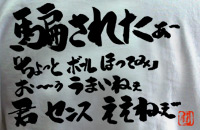 騙されたぁー
「ちょっと ボール ほってみぃ」
お〜〜う うまいねぇ
君 センス ええねぇー